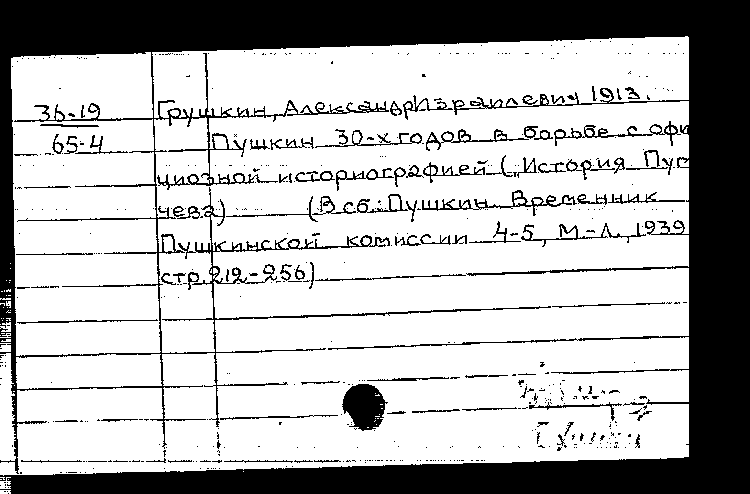 36-19 Грушкин, Александр Израилевич 1913.
65-4 Пушкин 30-х годов в борьбе с офи
циозной историографией ("История Пуг
чева) (В сб.: Пушкин. Временник
Пушкинской комиссии 4-5, М.-Л., 1939
стр. 212-256)